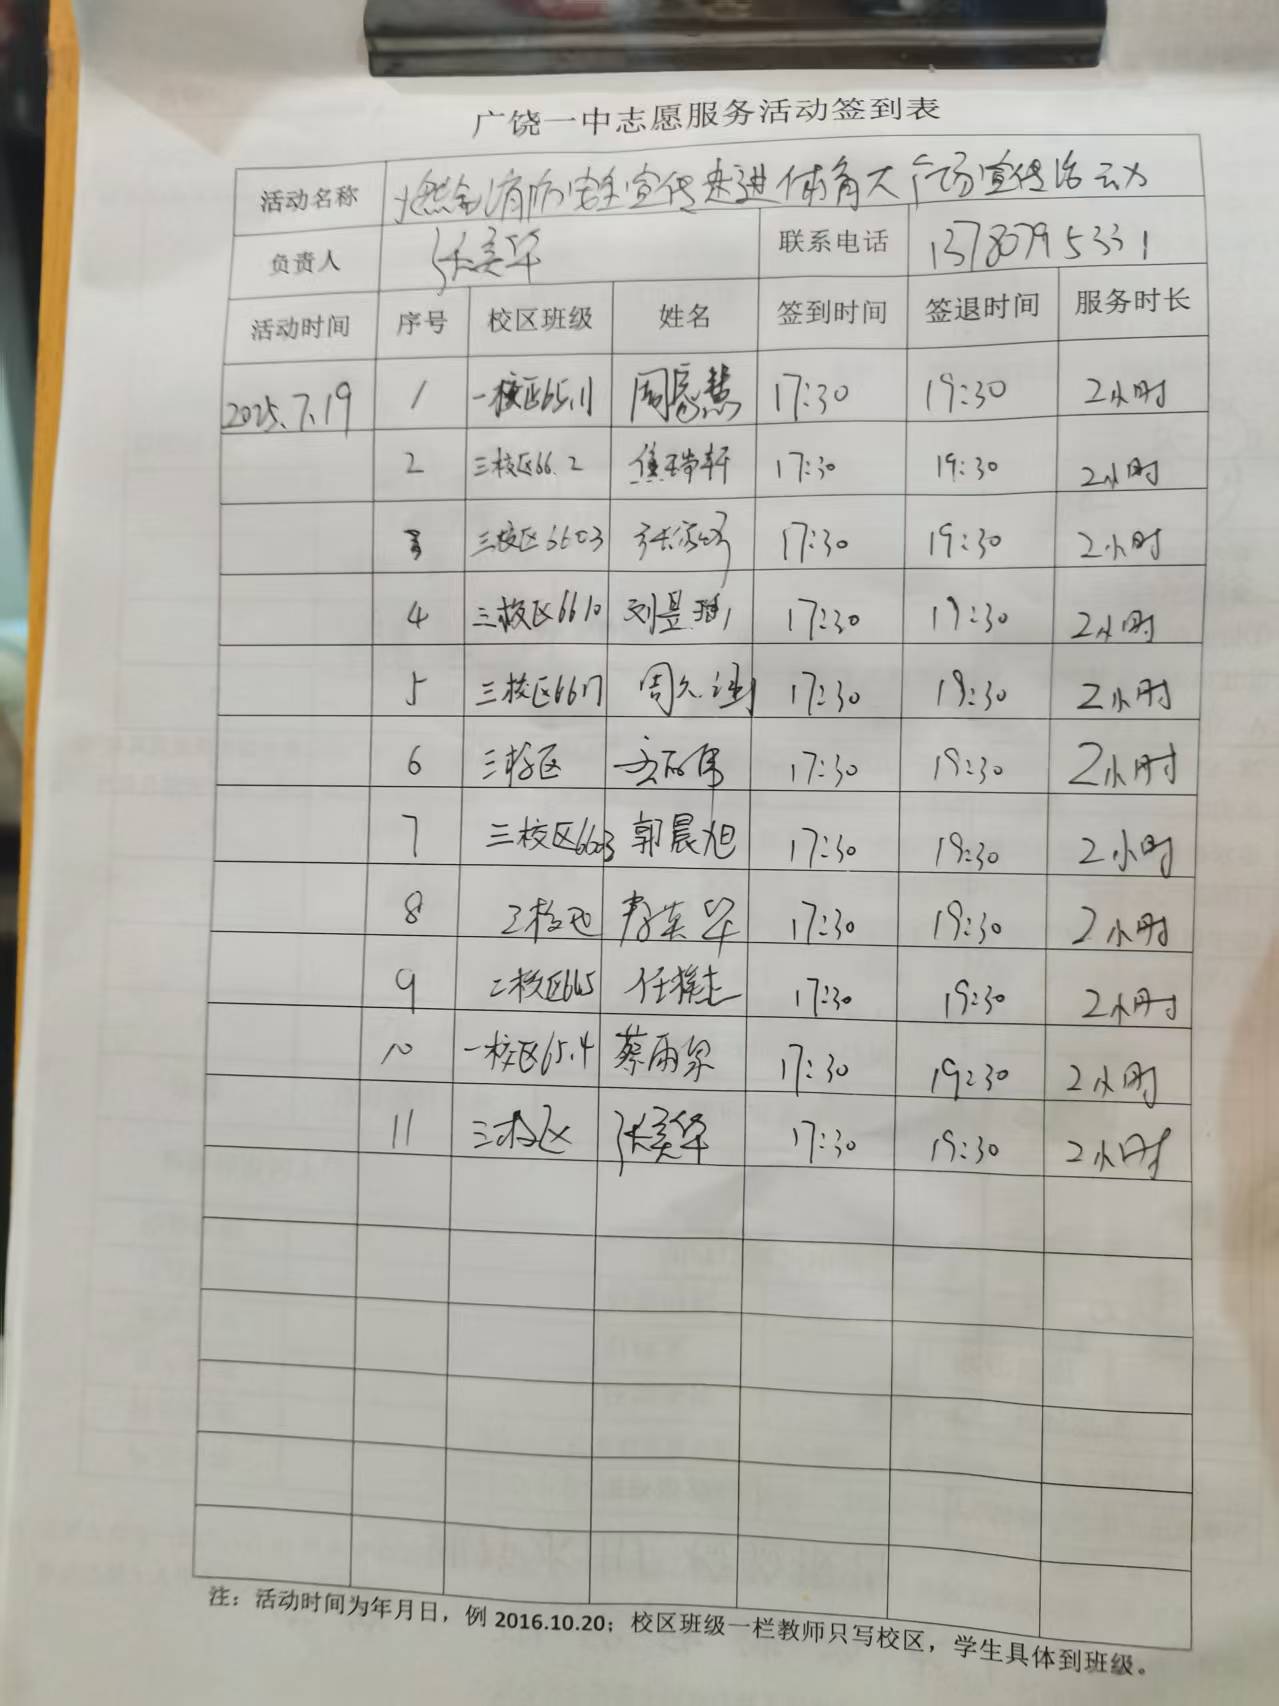 广饶一中志愿服务活动签到表
活动名称 消防安全宣传走进体育大广场宣传活动
负责人 张美华 联系电话 13780795331
活动时间 序号 校区班级 姓名 签到时间 签退时间 服务时长
2025.7.19 1 一校区65.11 周家慧 17:30 19:30 2小时
2 三校区66.2 焦瑞轩 17:30 19:30 2小时
3 三校区6603 17:30 19:30 2小时
4 三校区6610 刘昱 17:30 19:30 2小时
5 三校区6617 周久 17:30 19:30 2小时
6 三校区 17:30 19:30 2小时
7 三校区6603 郭晨旭 17:30 19:30 2小时
8 三校区 英华 17:30 19:30 2小时
9 二校区665 任 17:30 19:30 2小时
10 一校区65.4 蔡雨泉 17:30 19:30 2小时
11 三校区 张美华 17:30 19:30 2小时
注：活动时间为年月日，例 2016.10.20；校区班级一栏教师只写校区，学生具体到班级。